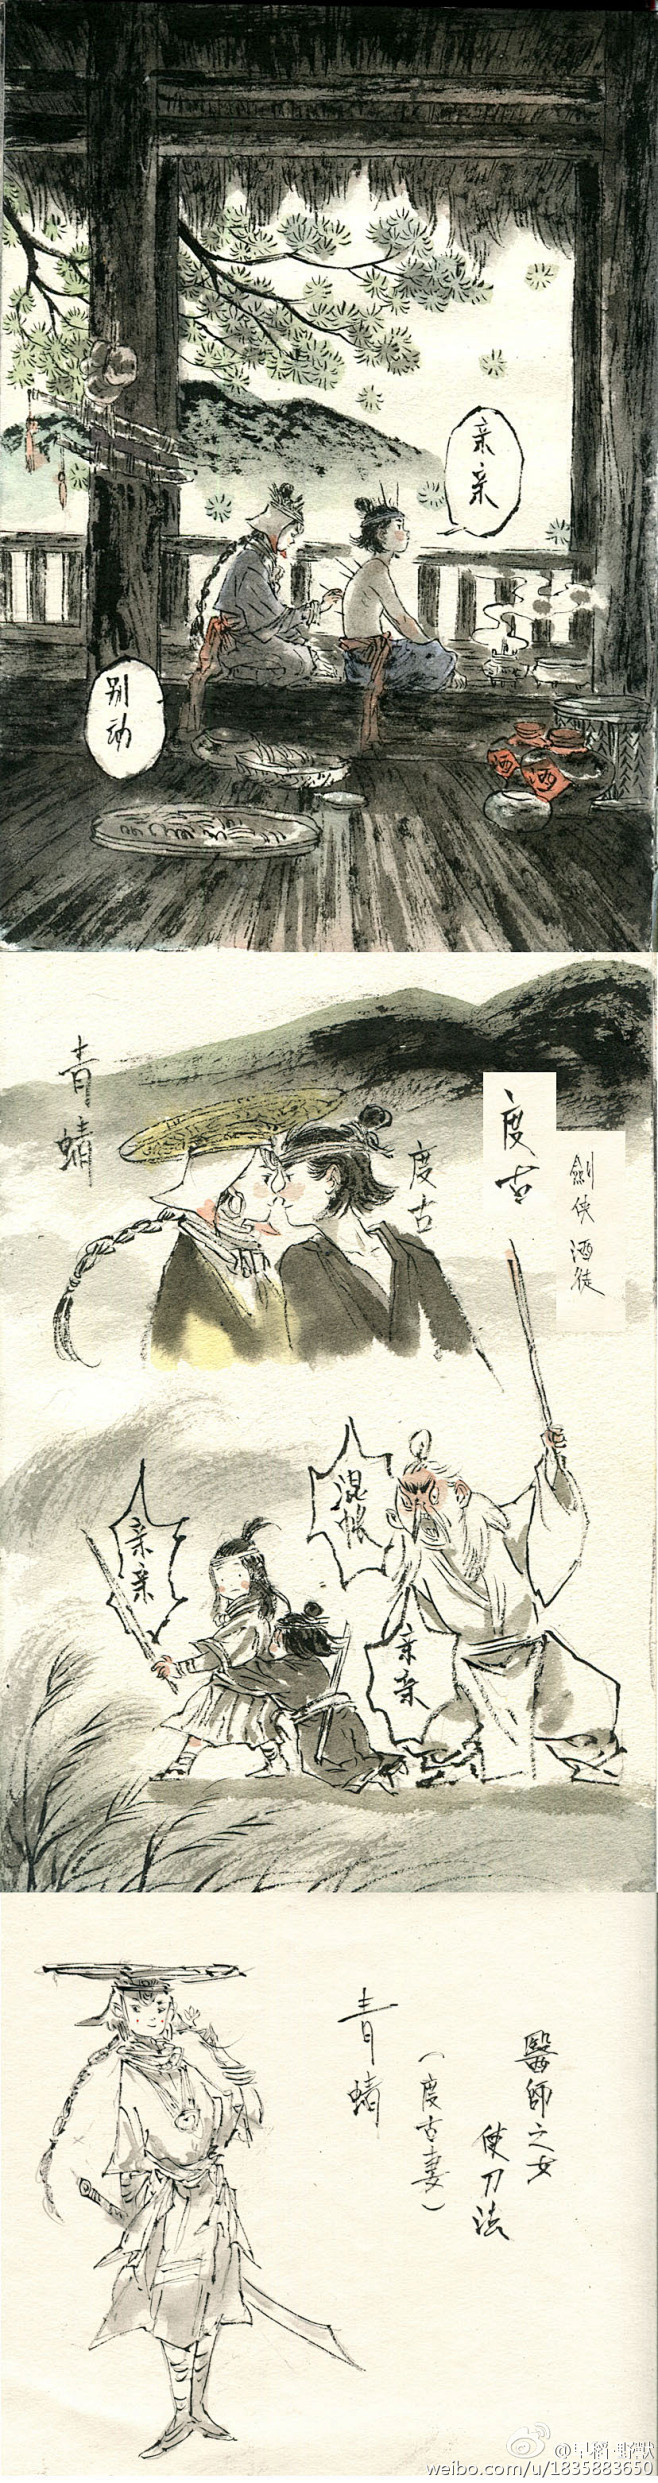 亲亲
别动
酒
酒
青蜻
度古
度古
劍侠 酒徒
亲亲
混帐
亲亲
青蜻
（度古妻）
醫師之女
使刀法
weibo.com/u/1835883650